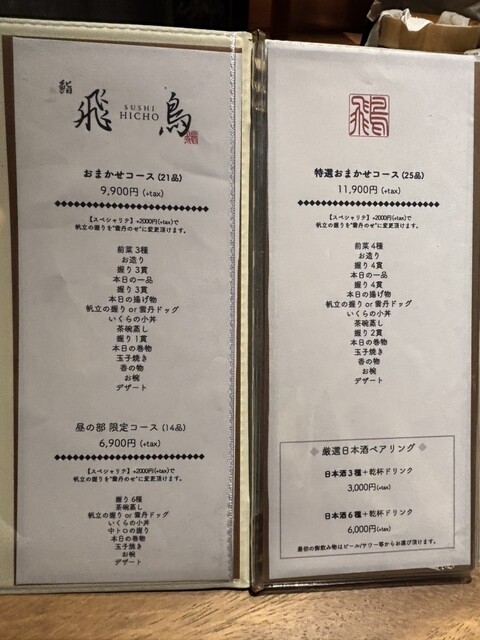 鮨
飛鳥
SUSHI
HICHO
おまかせコース (21品)
9,900円 (+tax)
【スペシャリテ】+2000円(+tax)で
帆立の握りを"雲丹のせ"に変更頂けます。
前菜 3種
お造り
握り 3貫
本日の一品
握り 3貫
本日の揚げ物
帆立の握り or 雲丹ドッグ
いくらの小丼
茶碗蒸し
握り 1貫
本日の巻物
玉子焼き
香の物
お椀
デザート
昼の部 限定コース (14品)
6,900円 (+tax)
【スペシャリテ】+2000円(+tax)で
帆立の握りを"雲丹のせ"に変更頂けます。
握り 6種
茶碗蒸し
帆立の握り or 雲丹ドッグ
いくらの小丼
中トロの握り
本日の巻物
玉子焼き
お椀
デザート
飛鳥
特選おまかせコース (25品)
11,900円 (+tax)
【スペシャリテ】+2000円(+tax)で
帆立の握りを"雲丹のせ"に変更頂けます。
前菜 4種
お造り
握り 4貫
本日の一品
握り 4貫
本日の揚げ物
帆立の握り or 雲丹ドッグ
いくらの小丼
茶碗蒸し
握り 2貫
本日の巻物
玉子焼き
香の物
お椀
デザート
厳選日本酒ペアリング
日本酒 3種+乾杯ドリンク
3,000円(+tax)
日本酒 6種+乾杯ドリンク
6,000円(+tax)
最初の御飲み物はビール/サワー等からお選び頂けます。